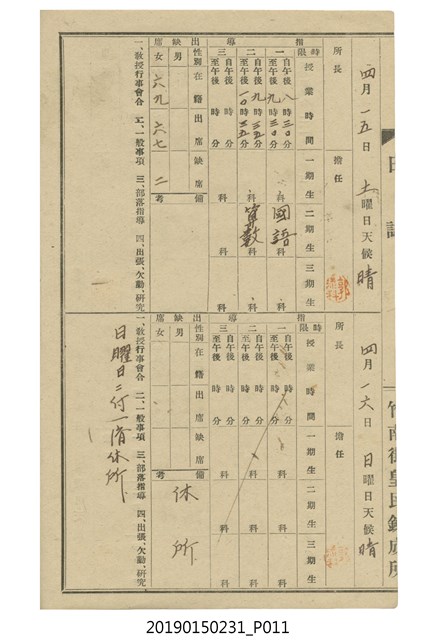 日誌
竹南街皇民鍊成所
四月一五日 土曜日 天候 晴
所長
擔任
指導
時限 授業時間 一期生 二期生 三期生
一 自午後八時三〇分 至午後九時三〇分 科 國語科 科
二 自午後九時三五分 至午後一〇時三五分 科 算數科 科
三 自午後 時 分 至午後 時 分 科 科 科
出缺席
性別 在籍 出席 缺席 備考
男
女 六九 六七 二
一、教授行事會合 二、一般事項 三、部落指導 四、出張、欠勤、研究
四月一六日 日曜日 天候 晴
所長
擔任
指導
時限 授業時間 一期生 二期生 三期生
一 自午後 時 分 至午後 時 分 科 科 科
二 自午後 時 分 至午後 時 分 科 科 科
三 自午後 時 分 至午後 時 分 科 科 科
出缺席
性別 在籍 出席 缺席 備考
男
女
休所
一、教授行事會合 二、一般事項 三、部落指導 四、出張、欠勤、研究
日曜日ニ付一齊休所
20190150231_P011